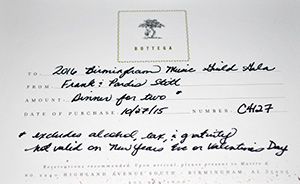 BOTTEGA
TO 2016 Birmingham Music Guild Gala
FROM Frank & Pardis Stitt
AMOUNT Dinner for two *
DATE OF PURCHASE 10/27/15 NUMBER C4127
* excludes alcohol, tax, & gratuity
not valid on New Years Eve or Valentine's Day
Reservations recommended
2240 HIGHLAND AVENUE SOUTH - BIRMINGHAM, AL